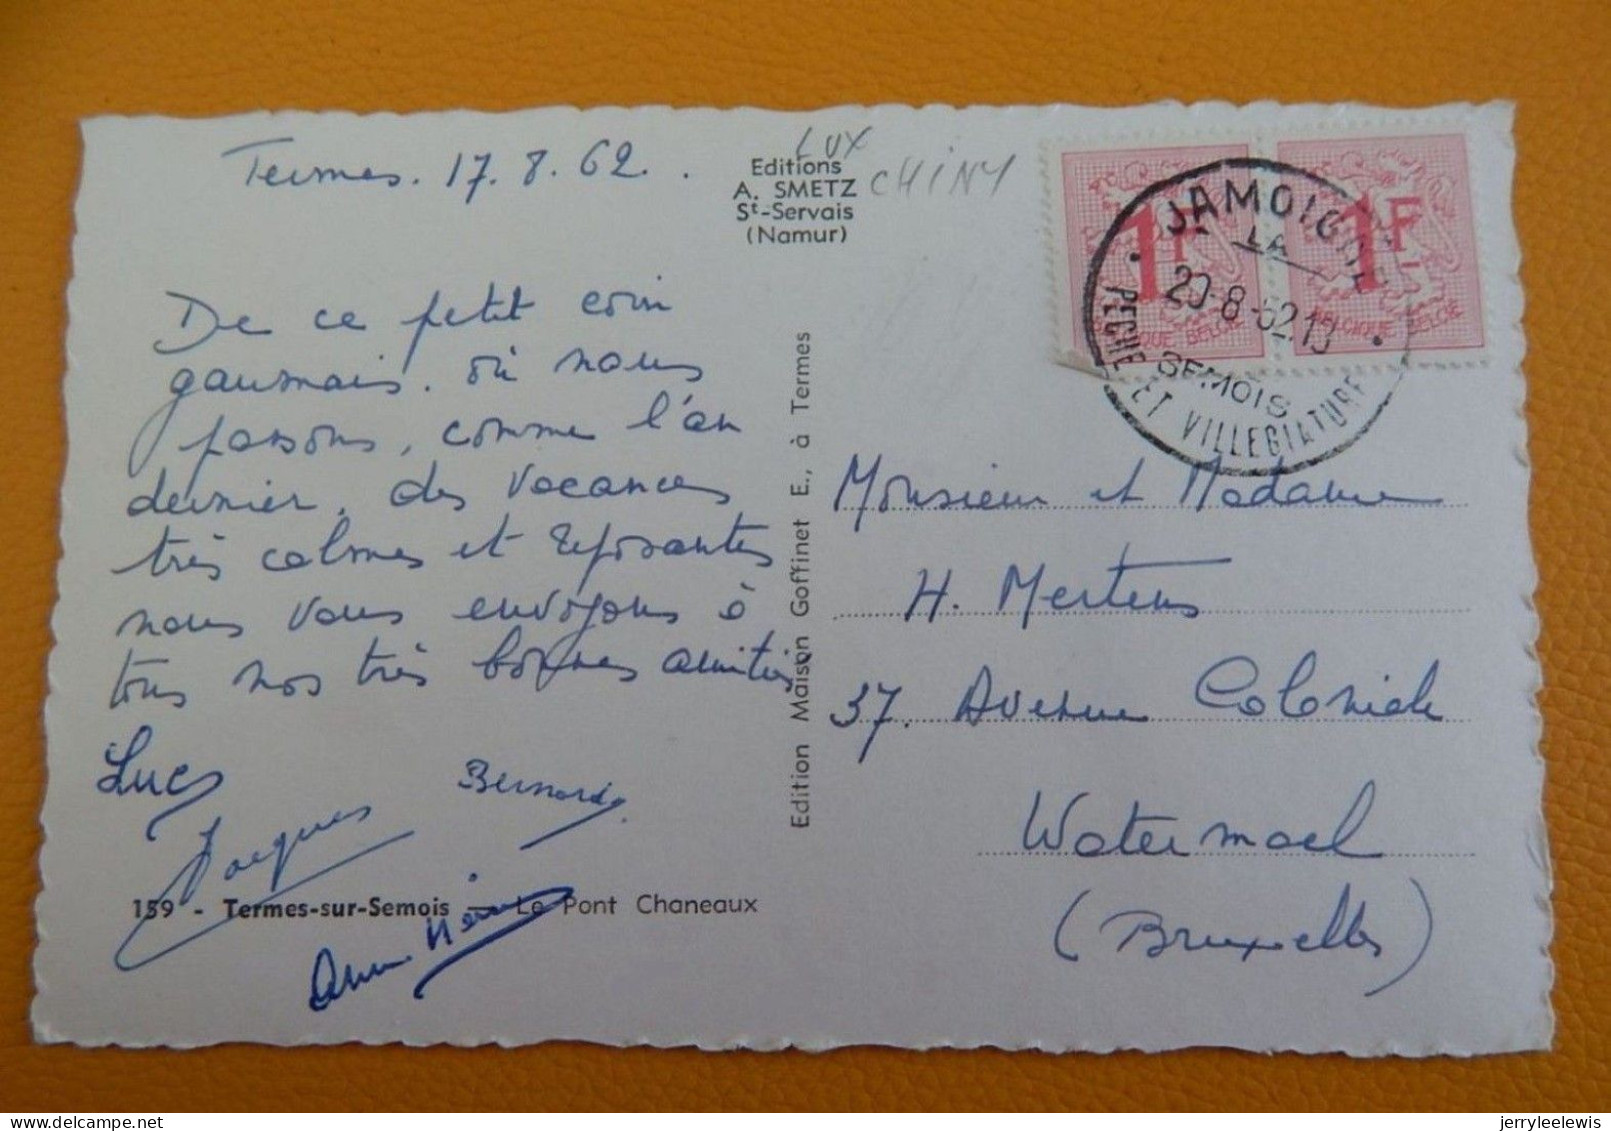 Termes. 17. 8. 62.
LUX
CHINY
Editions
A. SMETZ
St-Servais
(Namur)
1F
1F
BELGIQUE BELGIE
JAMOIGNE
LA
20-8-62 19
SEMOIS
PECHE ET VILLEGIATURE
De ce petit coin
gaumais. où nous
passons, comme l'an
dernier, des vacances
très calmes et reposantes
nous vous envoyons à
tous nos très bonnes amitiés
Lucy
Jacques
Bernard
159 - Termes-sur-Semois - Le Pont Chaneaux
Edition Maison Goffinet E., à Termes
Monsieur et Madame
H. Mertens
37. Avenue Coloniale
Watermael
(Bruxelles)
jerryleelewis